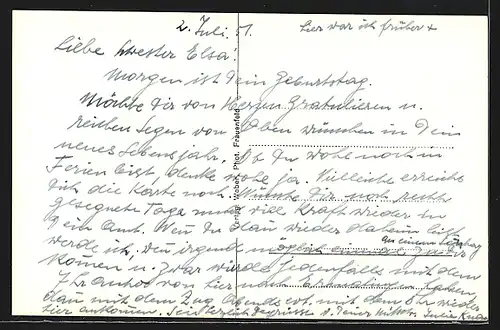 2. Juli. 51. Hier war ich früher +
Liebe Schwester Elsa!
Morgen ist Dein Geburtstag.
Möchte Dir von Herzen Gratulieren u.
reichen Segen von Oben wünschen in Dein
neues Lebensjahr. Ob Du wohl noch in
Ferien bist, denke wohl ja. Vielleicht erreicht
Dich die Karte noch. Wünsche Dir noch recht
gesegnete Tage und viel Kraft wieder in
Dein Amt. Wenn Du dann wieder daheim bist
an einem Sonntag
werde ich, wenn irgend möglich einmal zu Dir
kommen u. zwar würde jedenfalls mit dem
dann mit dem Zug Abends evt. mit dem Uhr wieder
hier ankommen.
Verlag Weber, Phot. Frauenfeld